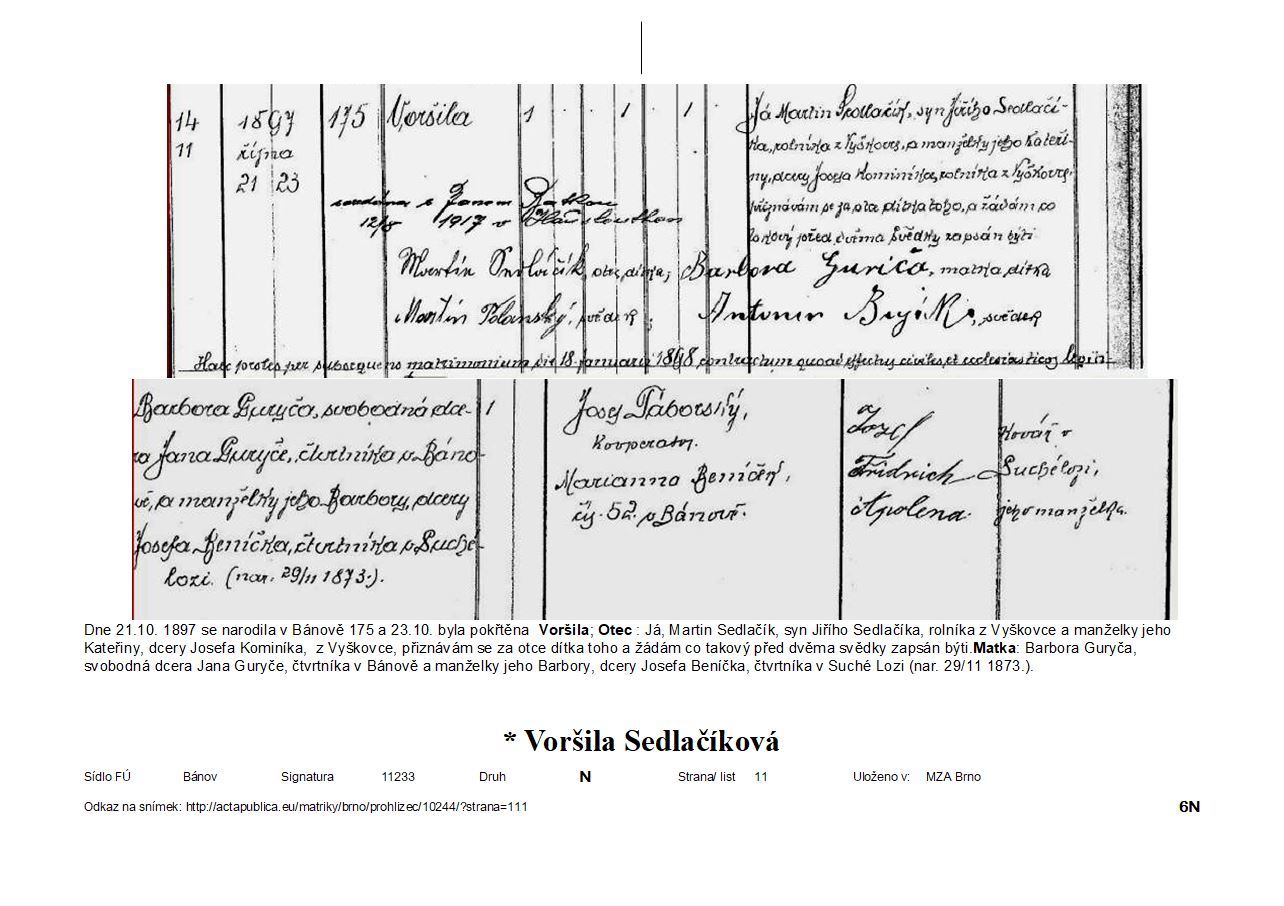 14 1897 175 Voršila 1 . . 1 . 1 Já Martin Sedlačík, syn Jiřího Sedlačí-
11 října ka, rolníka z Vyškovce, a manželky jeho Kateři-
21 23 ny, dcery Josefa Kominíka, rolníka z Vyškovce,
přiznávám se za otce dítka toho, a žádám co
takový před dvěma svědky zapsán býti
s Janem
12/8 1917 v
Martin Sedláčík, otec dítka; Barbora Guriča, matka dítka
Martin Polanský, svědek; Antonin svědek
Haec proles per subsequens matrimonium die 18 januarii 1898 contractum quoad effectus civiles et ecclesiasticos legiti-
Barbora Guryča, svobodná dce- 1 Josef Táborský, Jozef Kovář v
ra Jana Guryče, čtvrtníka v Báno- kooperator. Fridrich Suchélozi,
vě, a manželky jeho Barbory, dcery Marianna Beníček, Apolena. jeho manželka.
Josefa Beníčka, čtvrtníka v Suché čís. 52. v Bánově.
Lozi. (nar. 29/11 1873.).
Dne 21.10. 1897 se narodila v Bánově 175 a 23.10. byla pokřtěna Voršila; Otec : Já, Martin Sedlačík, syn Jiřího Sedlačíka, rolníka z Vyškovce a manželky jeho
Kateřiny, dcery Josefa Kominíka, z Vyškovce, přiznávám se za otce dítka toho a žádám co takový před dvěma svědky zapsán býti.Matka: Barbora Guryča,
svobodná dcera Jana Guryče, čtvrtníka v Bánově a manželky jeho Barbory, dcery Josefa Beníčka, čtvrtníka v Suché Lozi (nar. 29/11 1873.).
* Voršila Sedlačíková
Sídlo FÚ Bánov Signatura 11233 Druh N Strana/ list 11 Uloženo v: MZA Brno
Odkaz na snímek: http://actapublica.eu/matriky/brno/prohlizec/10244/?strana=111 6N